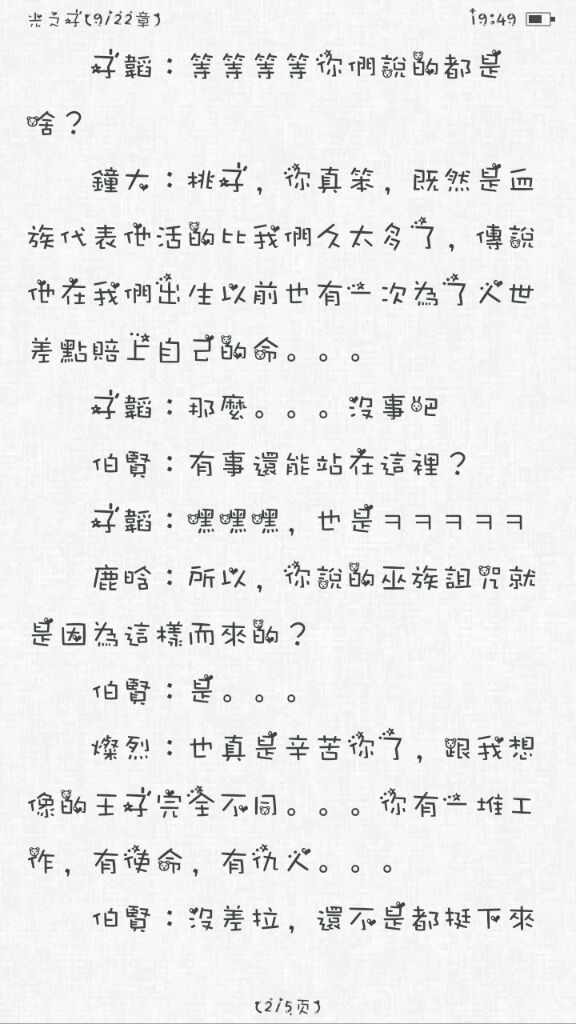 光之子(9/22章) 19:49
子韜：等等等等你們說的都是
啥？
鐘大：桃子，你真笨，既然是血
族代表他活的比我們久太多了，傳說
他在我們出生以前也有一次為了人世
差點賠上自己的命。。。
子韜：那麼。。。沒事吧
伯賢：有事還能站在這裡？
子韜：嘿嘿嘿，也是ㅋㅋㅋㅋㅋ
鹿晗：所以，你說的巫族詛咒就
是因為這樣而來的？
伯賢：是。。。
燦烈：也真是辛苦你了，跟我想
像的王子完全不同。。。你有一堆工
作，有使命，有仇人。。。
伯賢：沒差拉，還不是都挺下來
(2/5页)